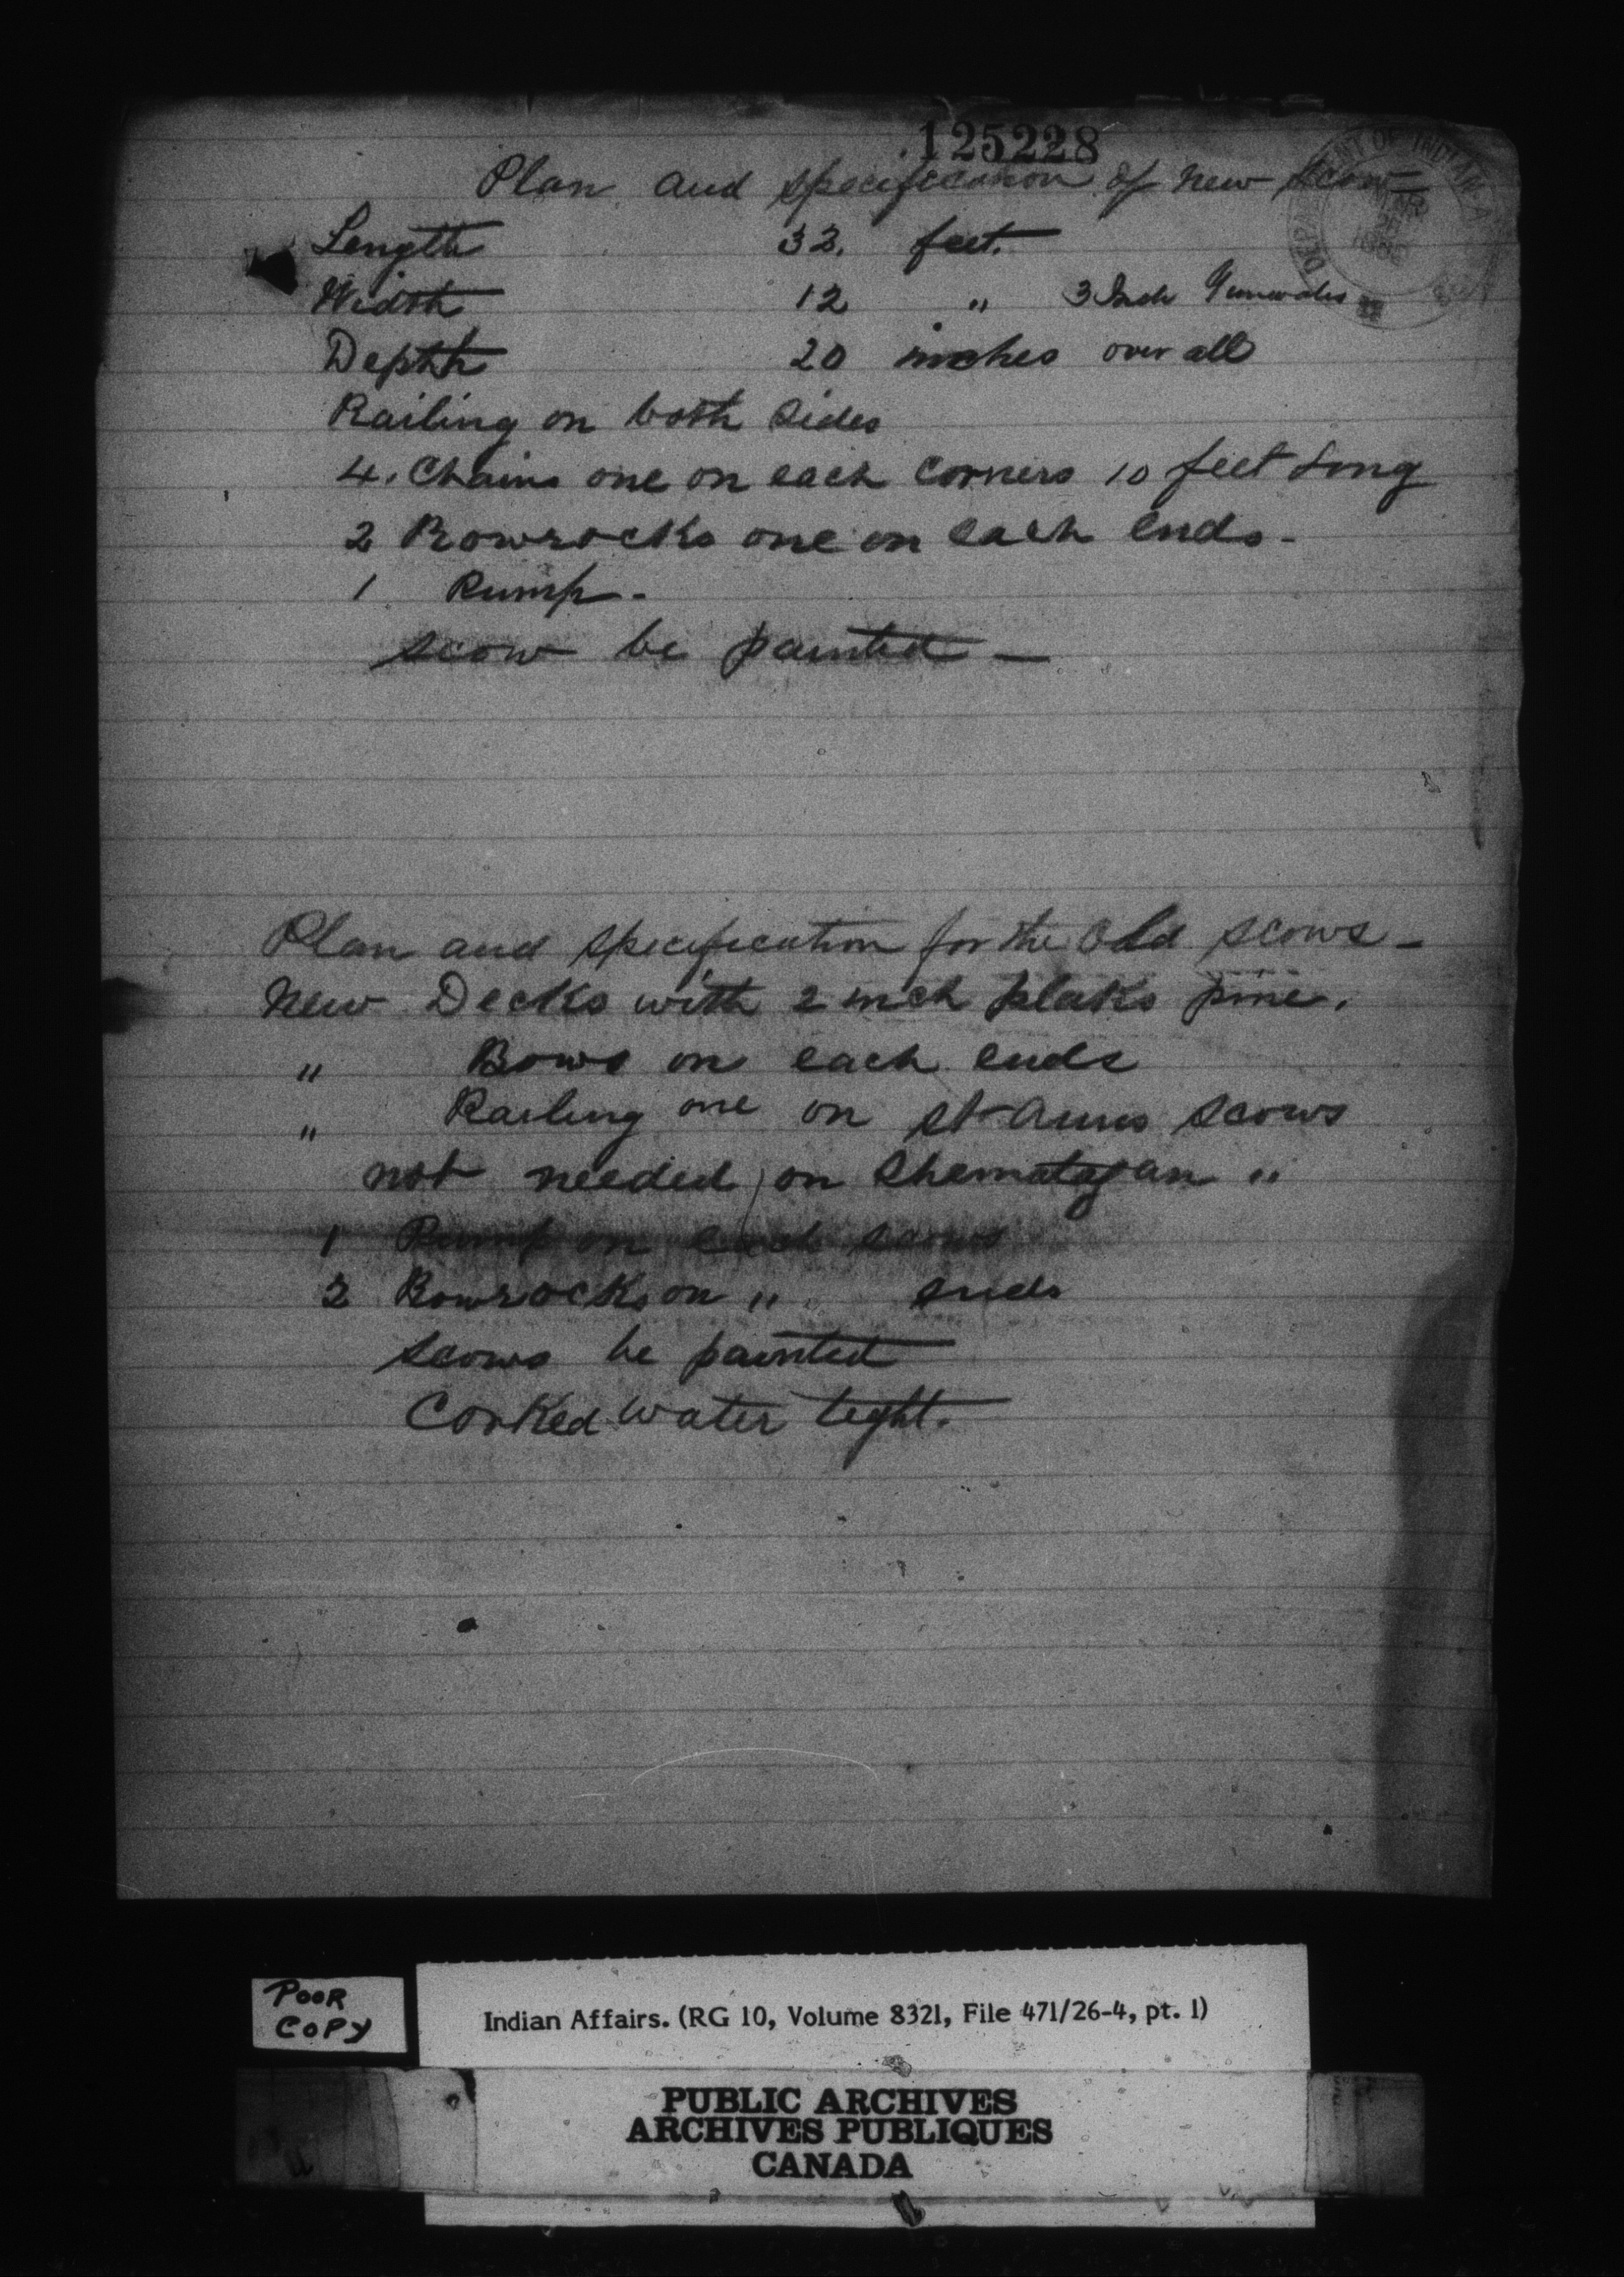 125228
Plan and specification of New scow
DEPARTMENT OF INDIAN A
MAR
Length 32. feet.
Width 12 " 3 Inch Gunwales
Depth 20 inches over all
Railing on both sides
4. Chains one on each corners 10 feet Long
2 Rowrocks one on each ends -
1 Pump -
scow be painted —
Plan and specification for the Old scows -
New Decks with 2 inch plaks pine.
" Bows on each ends
" Railing one on St Anns scows
not needed on Chematogan "
1 Pump on each scows
2 Rowrocks on " ends
scows be painted
Corked water tight.
POOR
COPY
Indian Affairs. (RG 10, Volume 8321, File 471/26-4, pt. 1)
PUBLIC ARCHIVES
ARCHIVES PUBLIQUES
CANADA